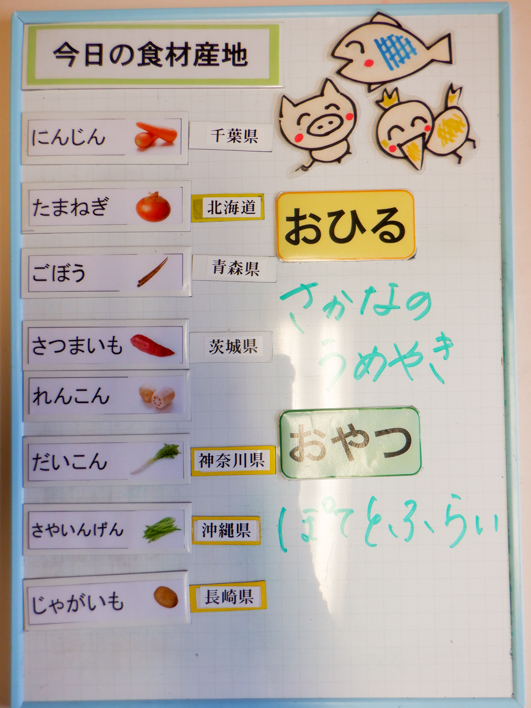 今日の食材産地
にんじん 千葉県
たまねぎ 北海道
ごぼう 青森県
さつまいも 茨城県
れんこん
だいこん 神奈川県
さやいんげん 沖縄県
じゃがいも 長崎県
おひる
さかなの
うめやき
おやつ
ぽてとふらい